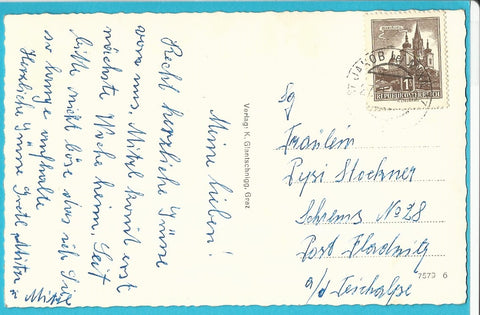 Meine Lieben!
Recht herzliche Grüsse
von uns. Mitzl komt erst
nächste Woche heim. Seit
bitte nicht böse das ich Sie
so lange aufhalte
Herzliche Grüsse Gretl Mitzi
Verlag: K. Glantschnigg, Graz
Fräulein
Stockner
Schrems No 28
Post Fladnitz
a/d Teichalpe
7579 6
REPUBLIK ÖSTERREICH
ST. JAKOB